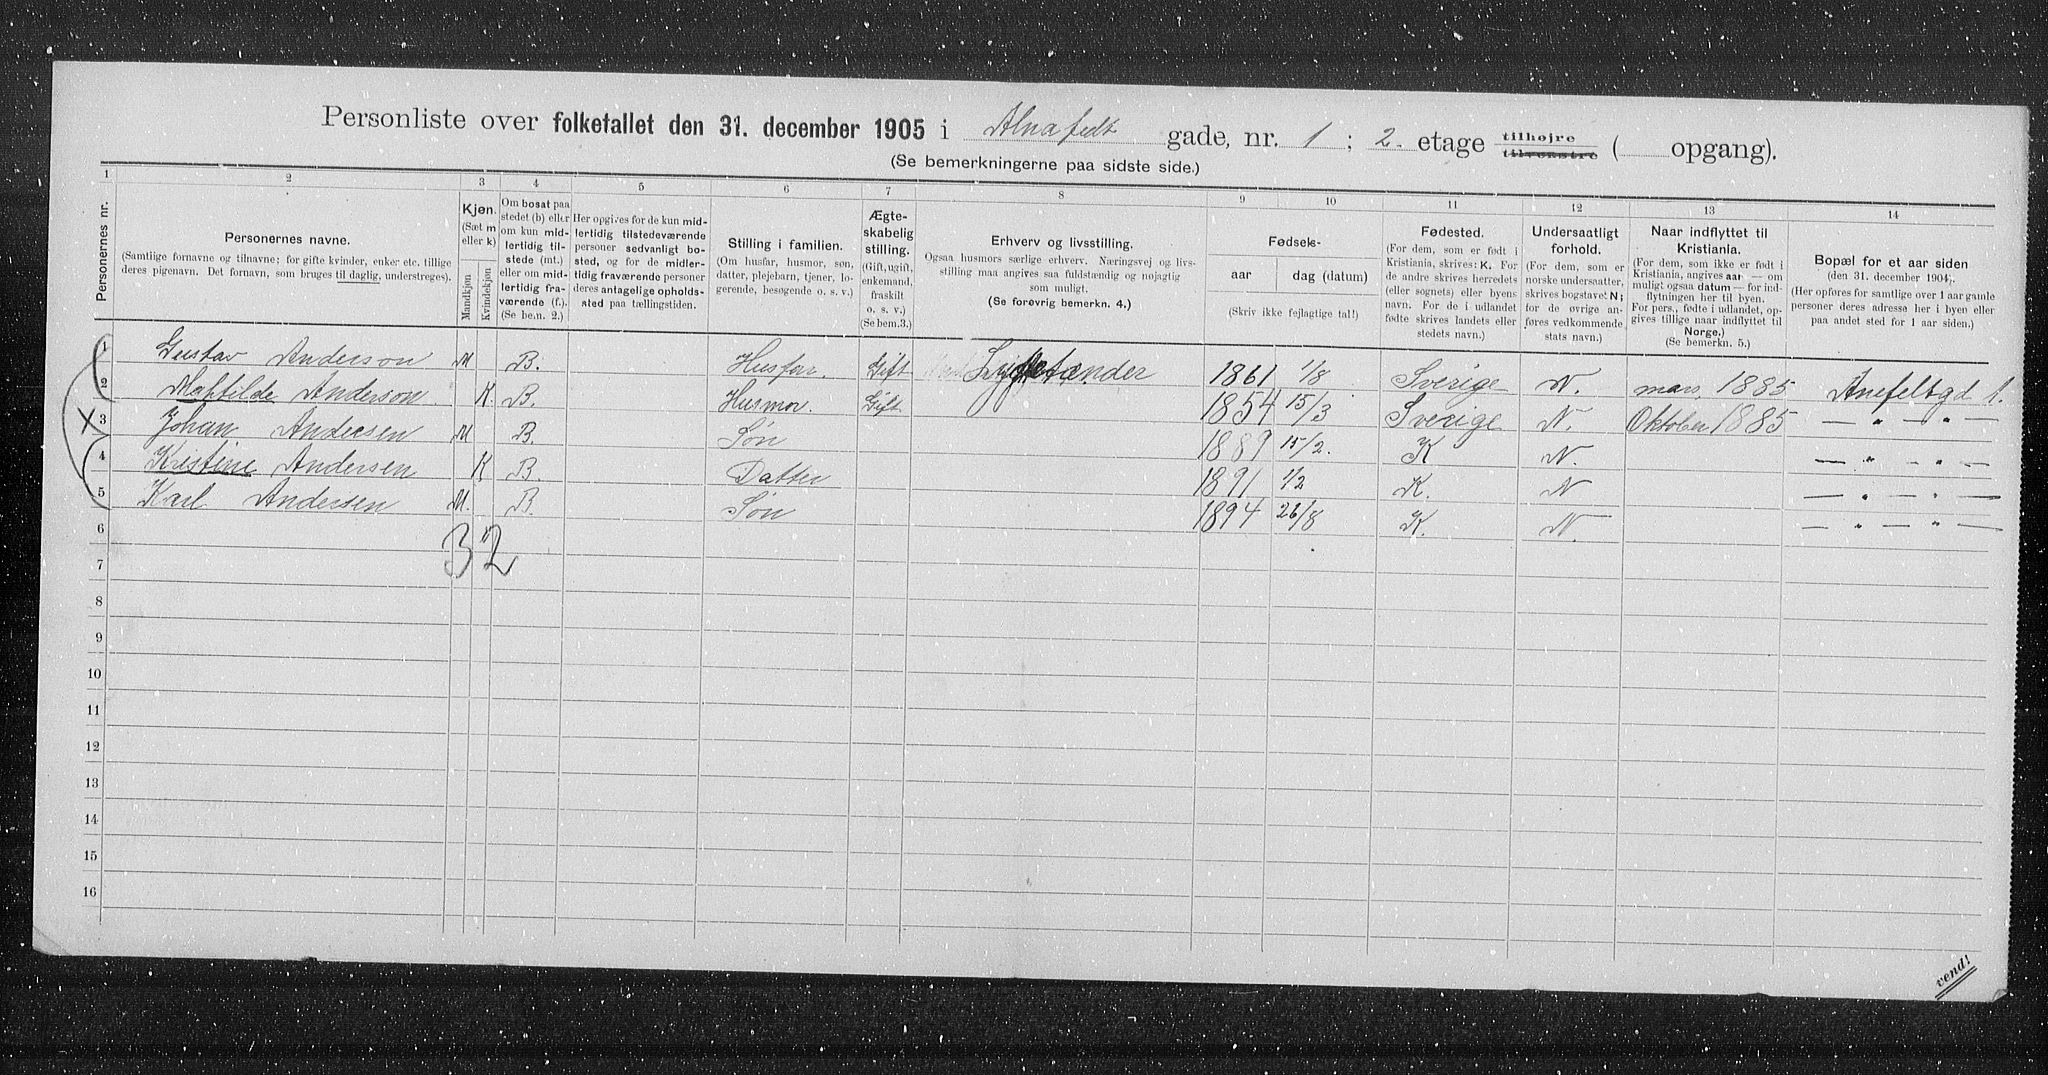 Personliste over folketallet den 31. december 1905 i Alnafedt gade, nr. 1 ; 2. etage tilhøjre tilvenstre ( opgang).
(Se bemerkningerne paa sidste side.)
1 2 3 4 5 6 7 8 9 10 11 12 13 14
Personernes nr.
Personernes navne.
(Samtlige fornavne og tilnavne; for gifte kvinder, enker etc. tillige
deres pigenavn. Det fornavn, som bruges til daglig, understreges).
Kjøn.
(Sæt m
eller k)
Mandkjøn
Kvindekjøn
Om bosat paa
stedet (b) eller
om kun mid-
lertidig til-
stede (mt.)
eller om mid-
lertidig fra-
værende (f.).
(Se bem. 2.)
Her opgives for de kun mid-
lertidig tilstedeværende
personer sedvanligt bo-
sted, og for de midler-
tidig fraværende personer
deres antagelige opholds-
sted paa tællingstiden.
Stilling i familien.
(Om husfar, husmor, søn,
datter, plejebarn, tjener, lo-
gerende, besøgende o. s. v.)
Ægte-
skabelig
stilling.
(Gift, ugift,
enkemand,
fraskilt
o. s. v.)
(Se bem.3.)
Erhverv og livsstilling.
Ogsaa husmors særlige erhverv. Næringsvej og livs-
stilling maa angives saa fuldstændig og nøjagtig
som muligt.
(Se forøvrig bemerkn. 4.)
Fødsels-
aar dag (datum)
(Skriv ikke fejlagtige tal!)
Fødested.
(For dem, som er født i
Kristiania, skrives: K. For
de andre skrives herredets
(eller sognets) eller byens
navn. For de i udlandet
fødte skrives landets eller
stedets navn.)
Undersaatligt
forhold.
(For dem, som er
norske undersaatter,
skrives bogstavet N;
for de øvrige an-
føres vedkommende
stats navn.)
Naar indflyttet til
Kristiania.
(For dem, som ikke er født i
Kristiania, angives aar — om
muligt ogsaa datum — for ind-
flytningen her til byen.
For pers., fødte i udlandet, op-
gives tillige naar indflyttet til
Norge.)
(Se bemerkn. 5.)
Bopæl for et aar siden
(den 31. december 1904).
(Her opføres for samtlige over 1 aar gamle
personer deres adresse her i byen eller
paa andet sted for 1 aar siden.)
1 Gustav Anderson M B. Husfar. Gift 1861 1/8 Sverige N. mars, 1885 Anefeltgd 1.
2 Mathilde Anderson K. B. Husmor. Gift 1854 15/3 Sverige N. Oktober 1885 — " — " —
X 3 Johan Andersen M B. Søn 1889 15/2. K N. — " — " —
4 Kristine Andersen K B. Datter 1891 1/2 K. N — " — " —
5 Karl Andersen M. B. Søn 1894 26/8 K. N. — " — " —
6
32
7
8
9
10
11
12
13
14
15
16
vend!